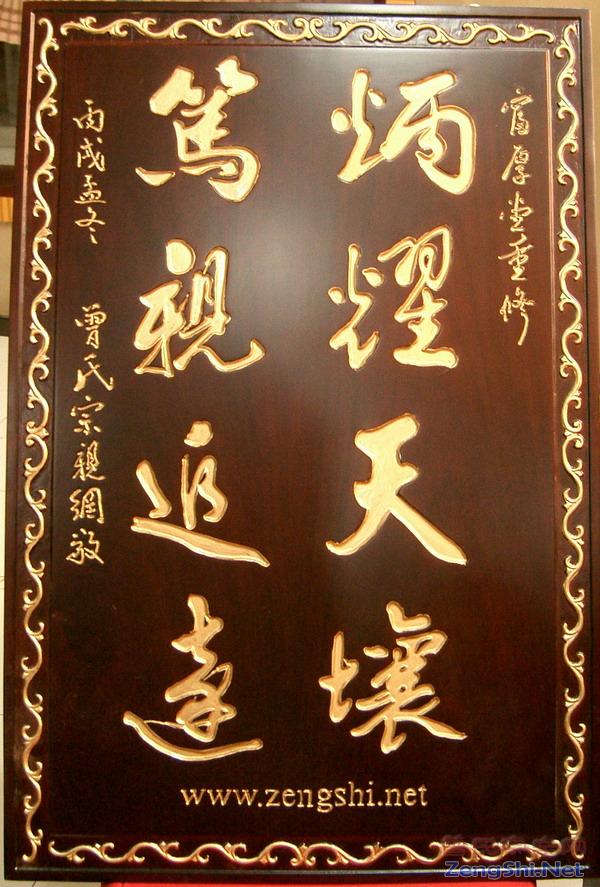 富厚堂重修
炳耀天壤
篤親追遠
丙戌孟冬 曾氏宗親網敬
www.zengshi.net
ZengShi.Net